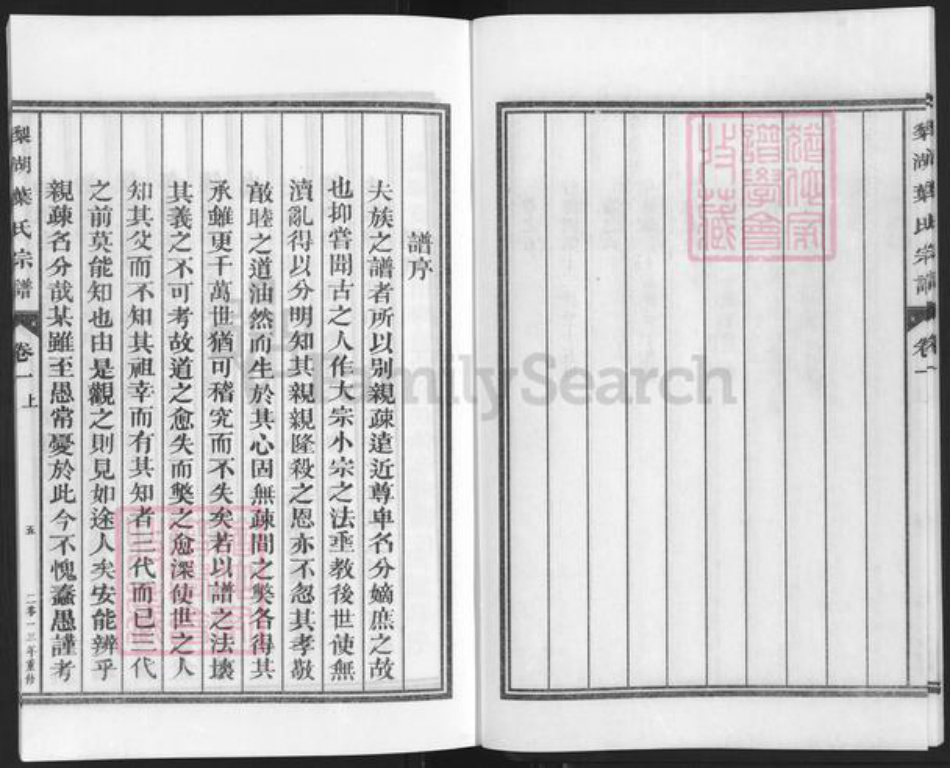 梨湖葉氏宗譜
卷一
道傳家
譜學會
收藏
譜序
夫族之譜者所以別親疎遠近尊卑名分嫡庶之故
也抑嘗聞古之人作大宗小宗之法垂教後世使無
瀆亂得以分明知其親親隆殺之恩亦不忽其孝敬
敢睦之道油然而生於其心固無疎間之獘各得其
承雖更千萬世猶可稽究而不失矣若以譜之法壊
其義之不可考故道之愈失而獘之愈深使世之人
知其父而不知其祖幸而有其知者三代而已三代
之前莫能知也由是觀之則見如途人矣安能辨乎
親疎名分哉某雖至愚常憂於此今不愧蠢愚謹考
梨湖葉氏宗譜
卷一
上
五
二零一三年重修
FamilySearch